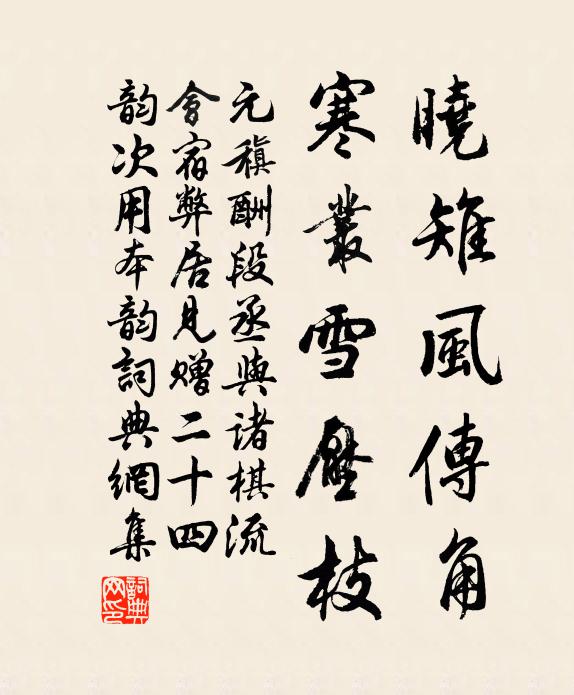 曉雉風傳角
寒叢雪壓枝
元稹酬段丞與諸棋流
會宿弊居見贈二十四
韵次用本韵詞典網集